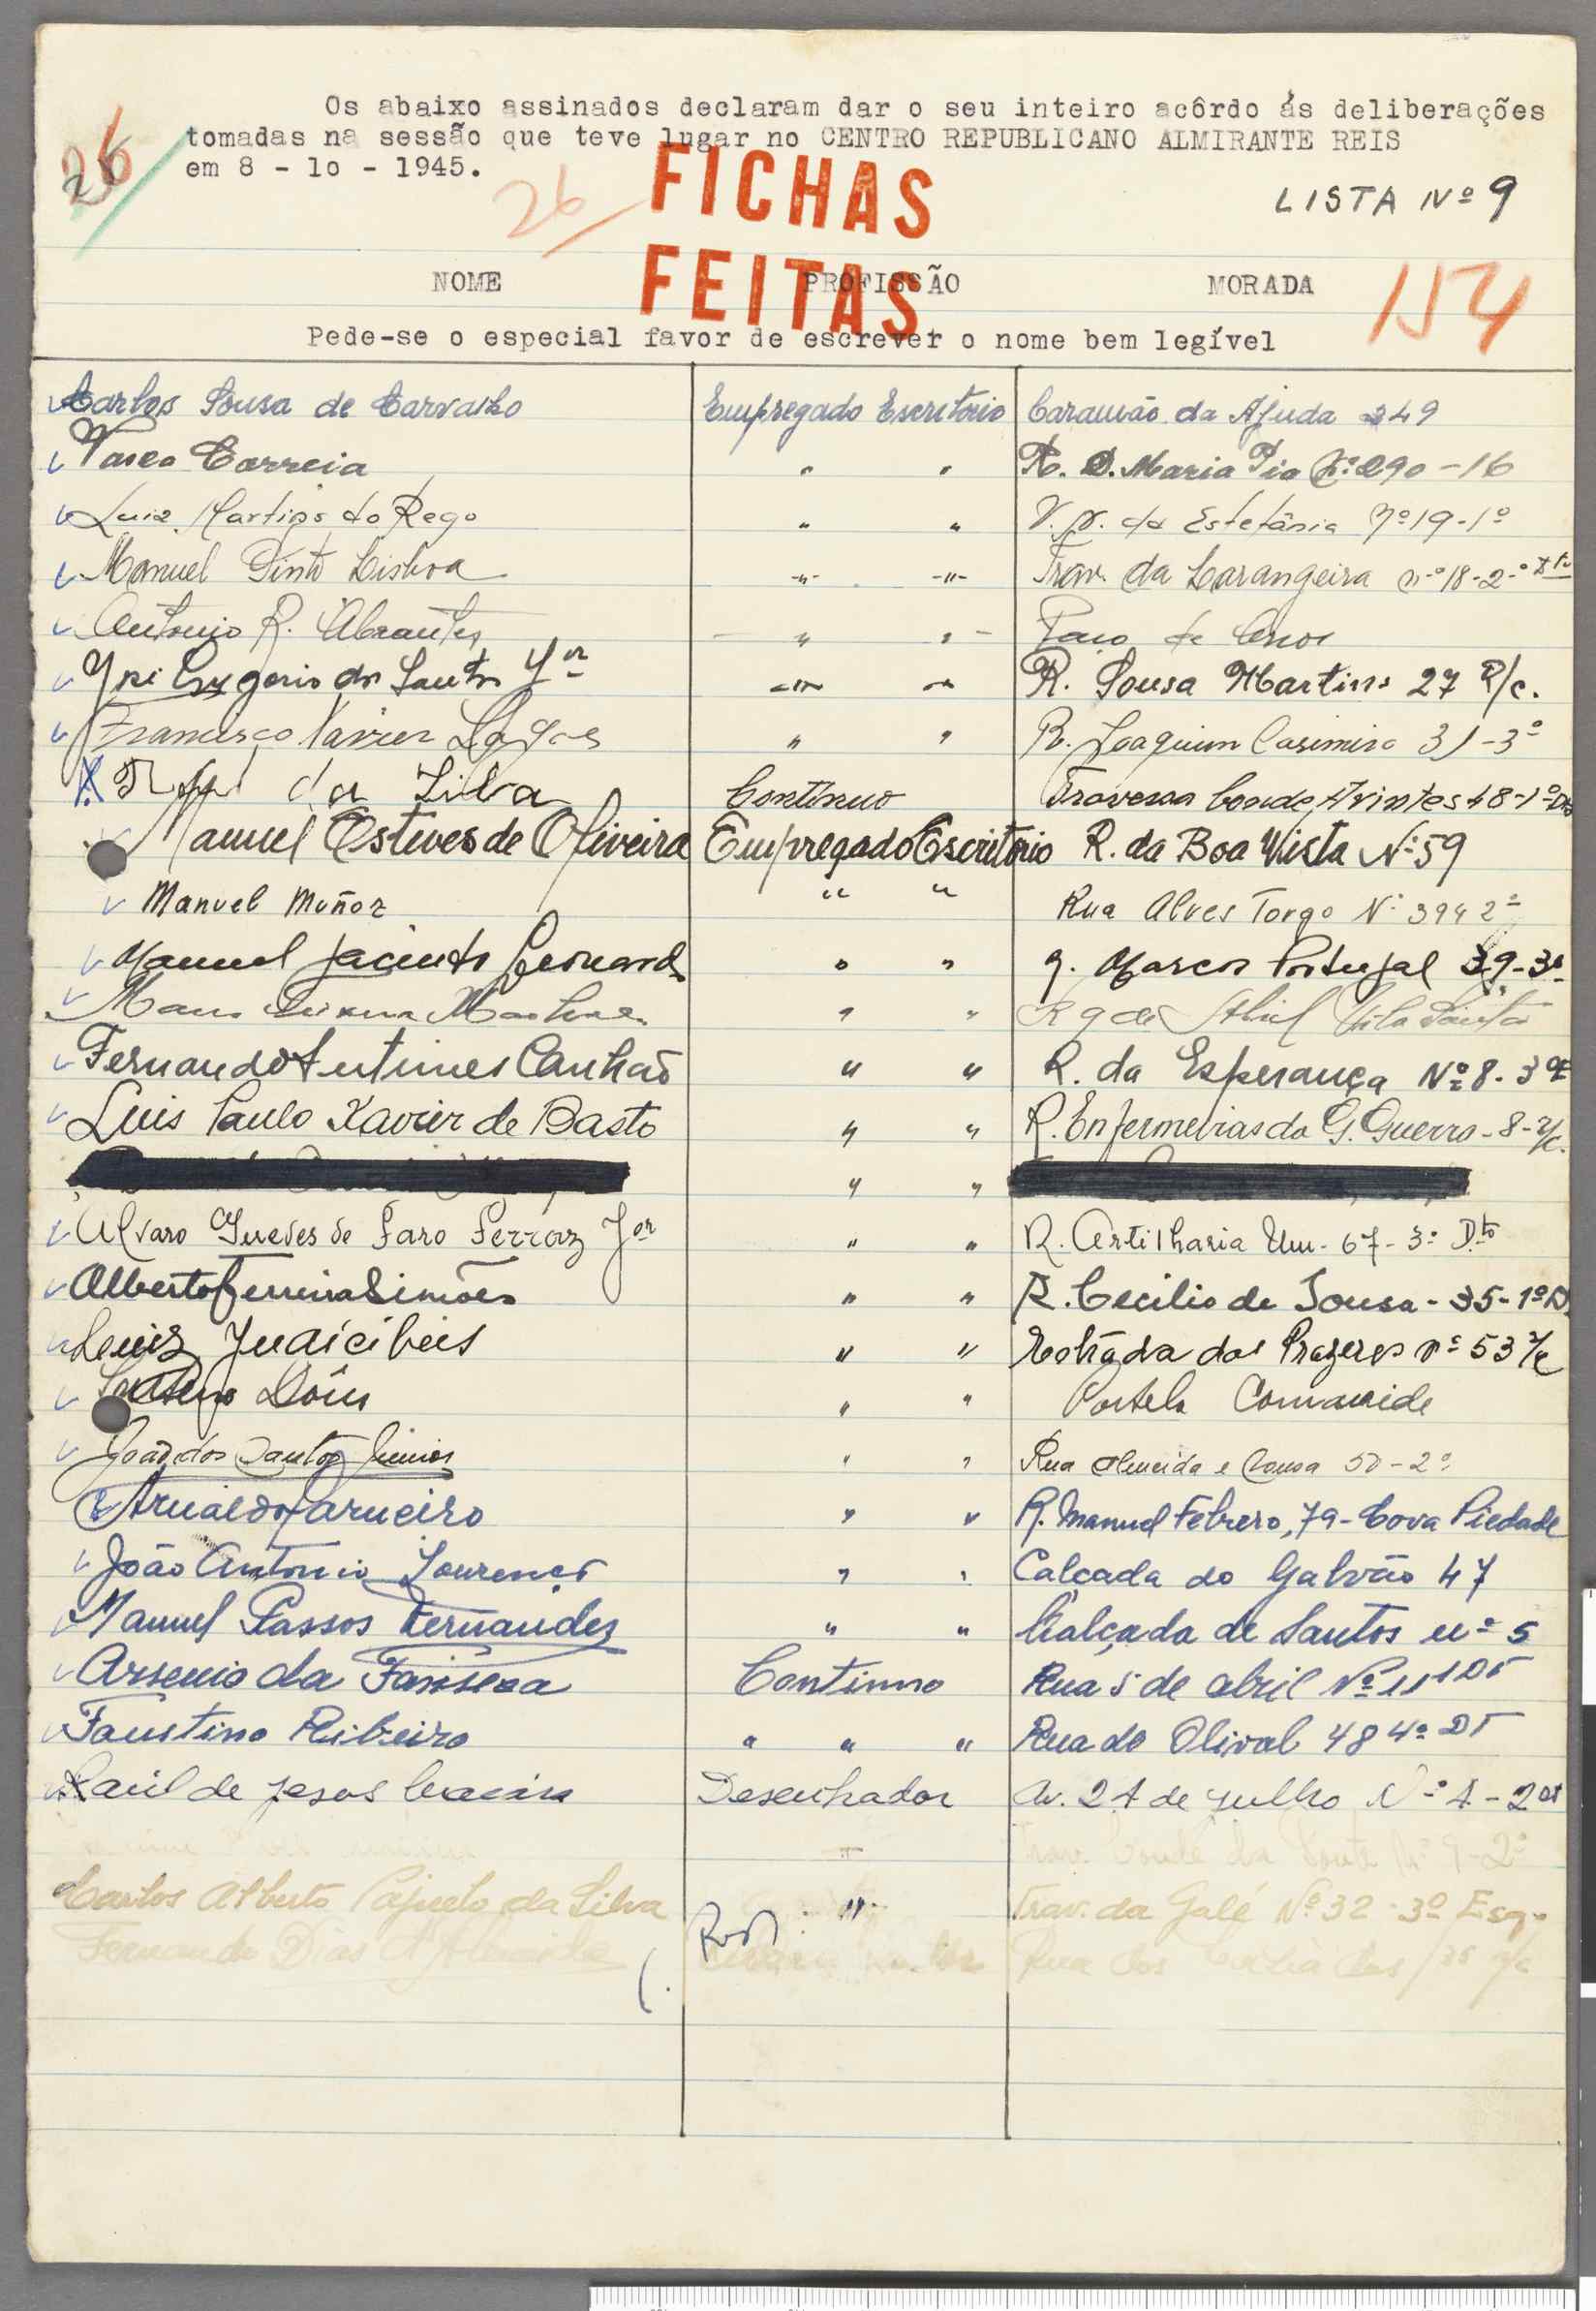 Os abaixo assinados declaram dar o seu inteiro acôrdo ás deliberações
tomadas na sessão que teve lugar no CENTRO REPUBLICANO ALMIRANTE REIS
em 8 - 10 - 1945.
26
26
FICHAS
LISTA Nº 9
FEITAS
NOME PROFISSÃO MORADA
154
Pede-se o especial favor de escrever o nome bem legível
Carlos Sousa de Carvalho Empregado Escritorio Caramão da Ajuda 349
Vasco Correia " " R. D. Maria Pia Nº 290 - 1º
Luiz Martins do Rego " " da Estefânia Nº 19-1º
Manuel Pinto Lisboa -"- -"- Trav. da Larangeira n.º 18-2.º Dto
Antonio R. Abrantes " " Paço de Arcos
dos Santos Jor " " R. Sousa Martins 27 R/c.
Francisco Xavier " " R. Joaquim Casimiro 31-3º
da Silva Continuo Travessa Conde Avintes 48-1º Dto
Manuel Esteves de Oliveira Empregado Escritório R. da Boa Vista Nº 59
Manuel Muñoz " " Rua Alves Torgo Nº 394 2º
Manuel Jacinto " " Marcos Portugal 39-3º
" "
Fernando Antunes Canhão " " R. da Esperança Nº 8. 3º E
Luis Paulo Xavier de Basto " " R. Enfermeiras da G. Guerra - 8 - r/c.
" "
Alvaro Guedes de Faro Ferraz Jor " " R. Artilharia Um - 67 - 3º Dto
Alberto Ferreira Simões " " R. Cecilio de Sousa - 35-1º D
Luiz Judicibus " " Estrada dos Prazeres nº 53 r/c
" " Portela Carnaxide
João dos Santos Junior " " Rua Almeida e Sousa 50-2º
Arnaldo Carneiro " " R. Manuel Febrero, 79 - Cova Piedade
João Antonio Lourenço " " Calçada do Galvão 47
Manuel Passos Fernandes " " Calçada de Santos nº 5
Arsenio da Fonseca Continuo Rua 5 de abril Nº 11 1 DT
Faustino Ribeiro " " " Rua do Olival 48 4º DT
Raúl de Jesus Desenhador Av. 24 de Julho Nº 4-2º
Trav. Conde da Ponte Nº 9-2º
Carlos Alberto da Silva " Trav. da Galé Nº 32-3º Esq.
Fernando Dias d'Almeida Rua dos